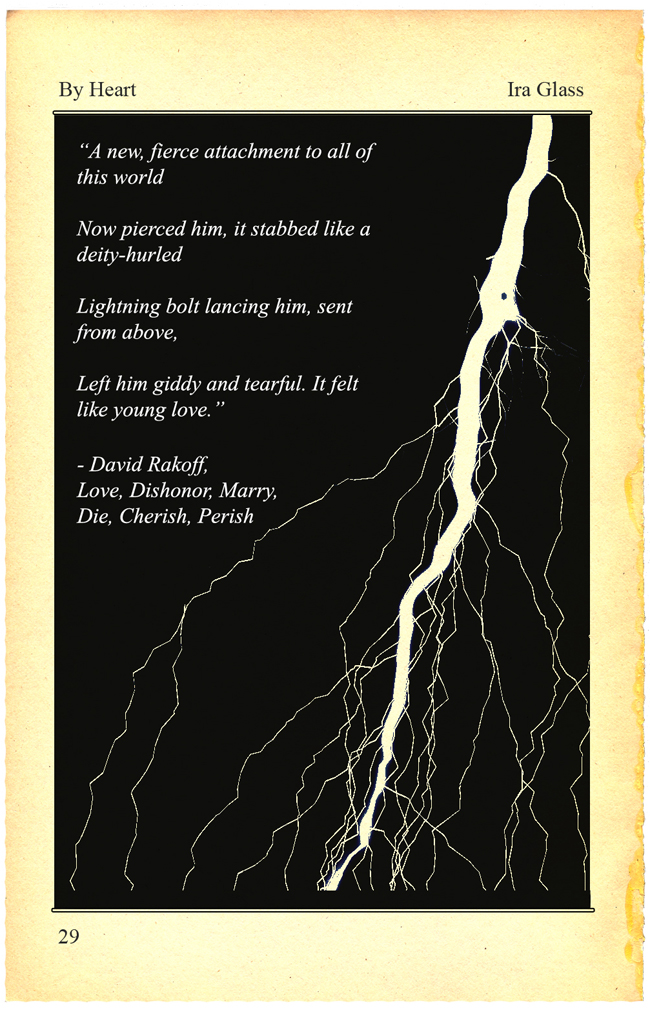 By Heart
Ira Glass
“A new, fierce attachment to all of
this world
Now pierced him, it stabbed like a
deity-hurled
Lightning bolt lancing him, sent
from above,
Left him giddy and tearful. It felt
like young love.”
- David Rakoff,
Love, Dishonor, Marry,
Die, Cherish, Perish
29